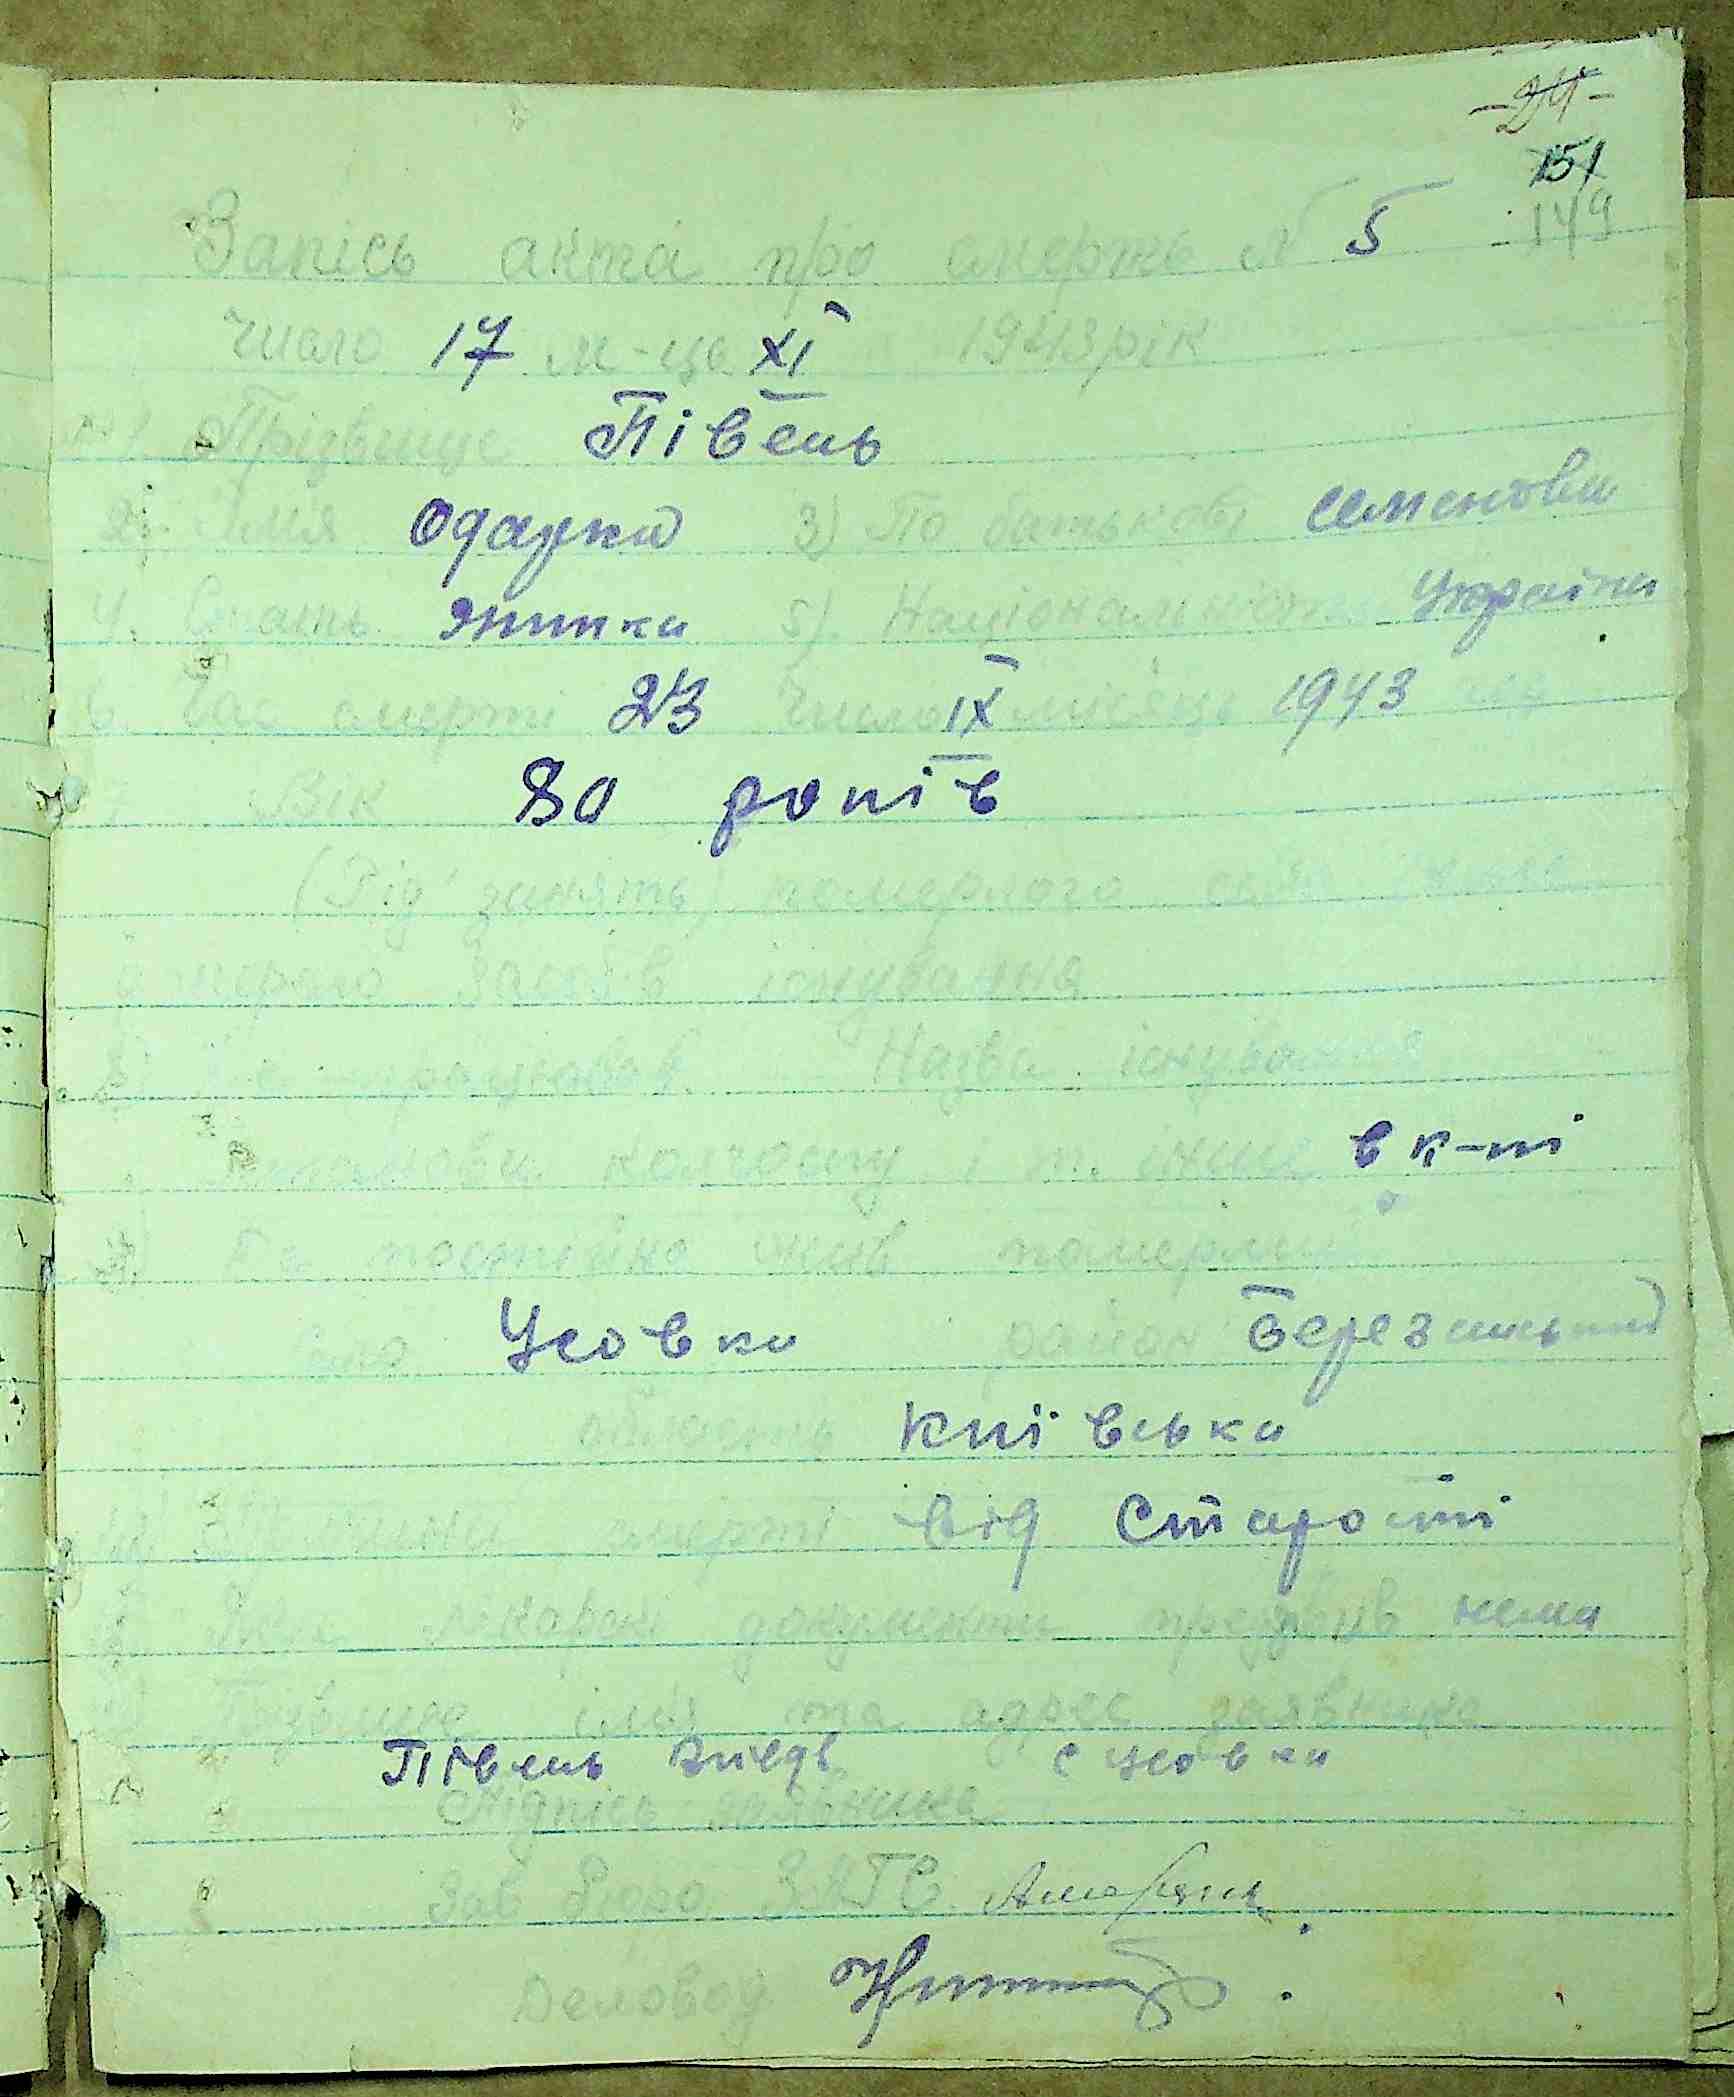 -24-
151
149
Запісь акта про смерть № 5
Число 17 м-ць XI 1943 рік
1. Прізвище Півень
2. Імя Одарка 3) По батькові Семенови
4. Стать жінка 5) Національність Украінка
6. Час смерті 23 Число IX місяць 1943
Вік 80 років
(Рід занять) померлого
засобів існування
працював Назва існування
колгоспу і т. інше в к-пі
9) Де постійно жив померлий
село Усовка район Березанський
область Киівська
смерті від старости
лікарскі документи нема
Прізвище імя та адрес заявника
Півень с Усовка
Підпісь заявника
Зав Бюро ЗАГС
Деловод